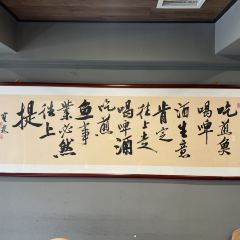 吃煎魚
喝啤
酒生意
肯定
往上走
喝啤酒
吃煎
鱼事
業必然
往上
提